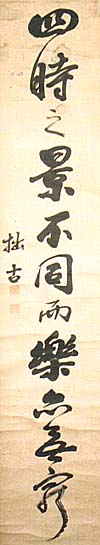 四時之景不同而樂亦無窮
拙古